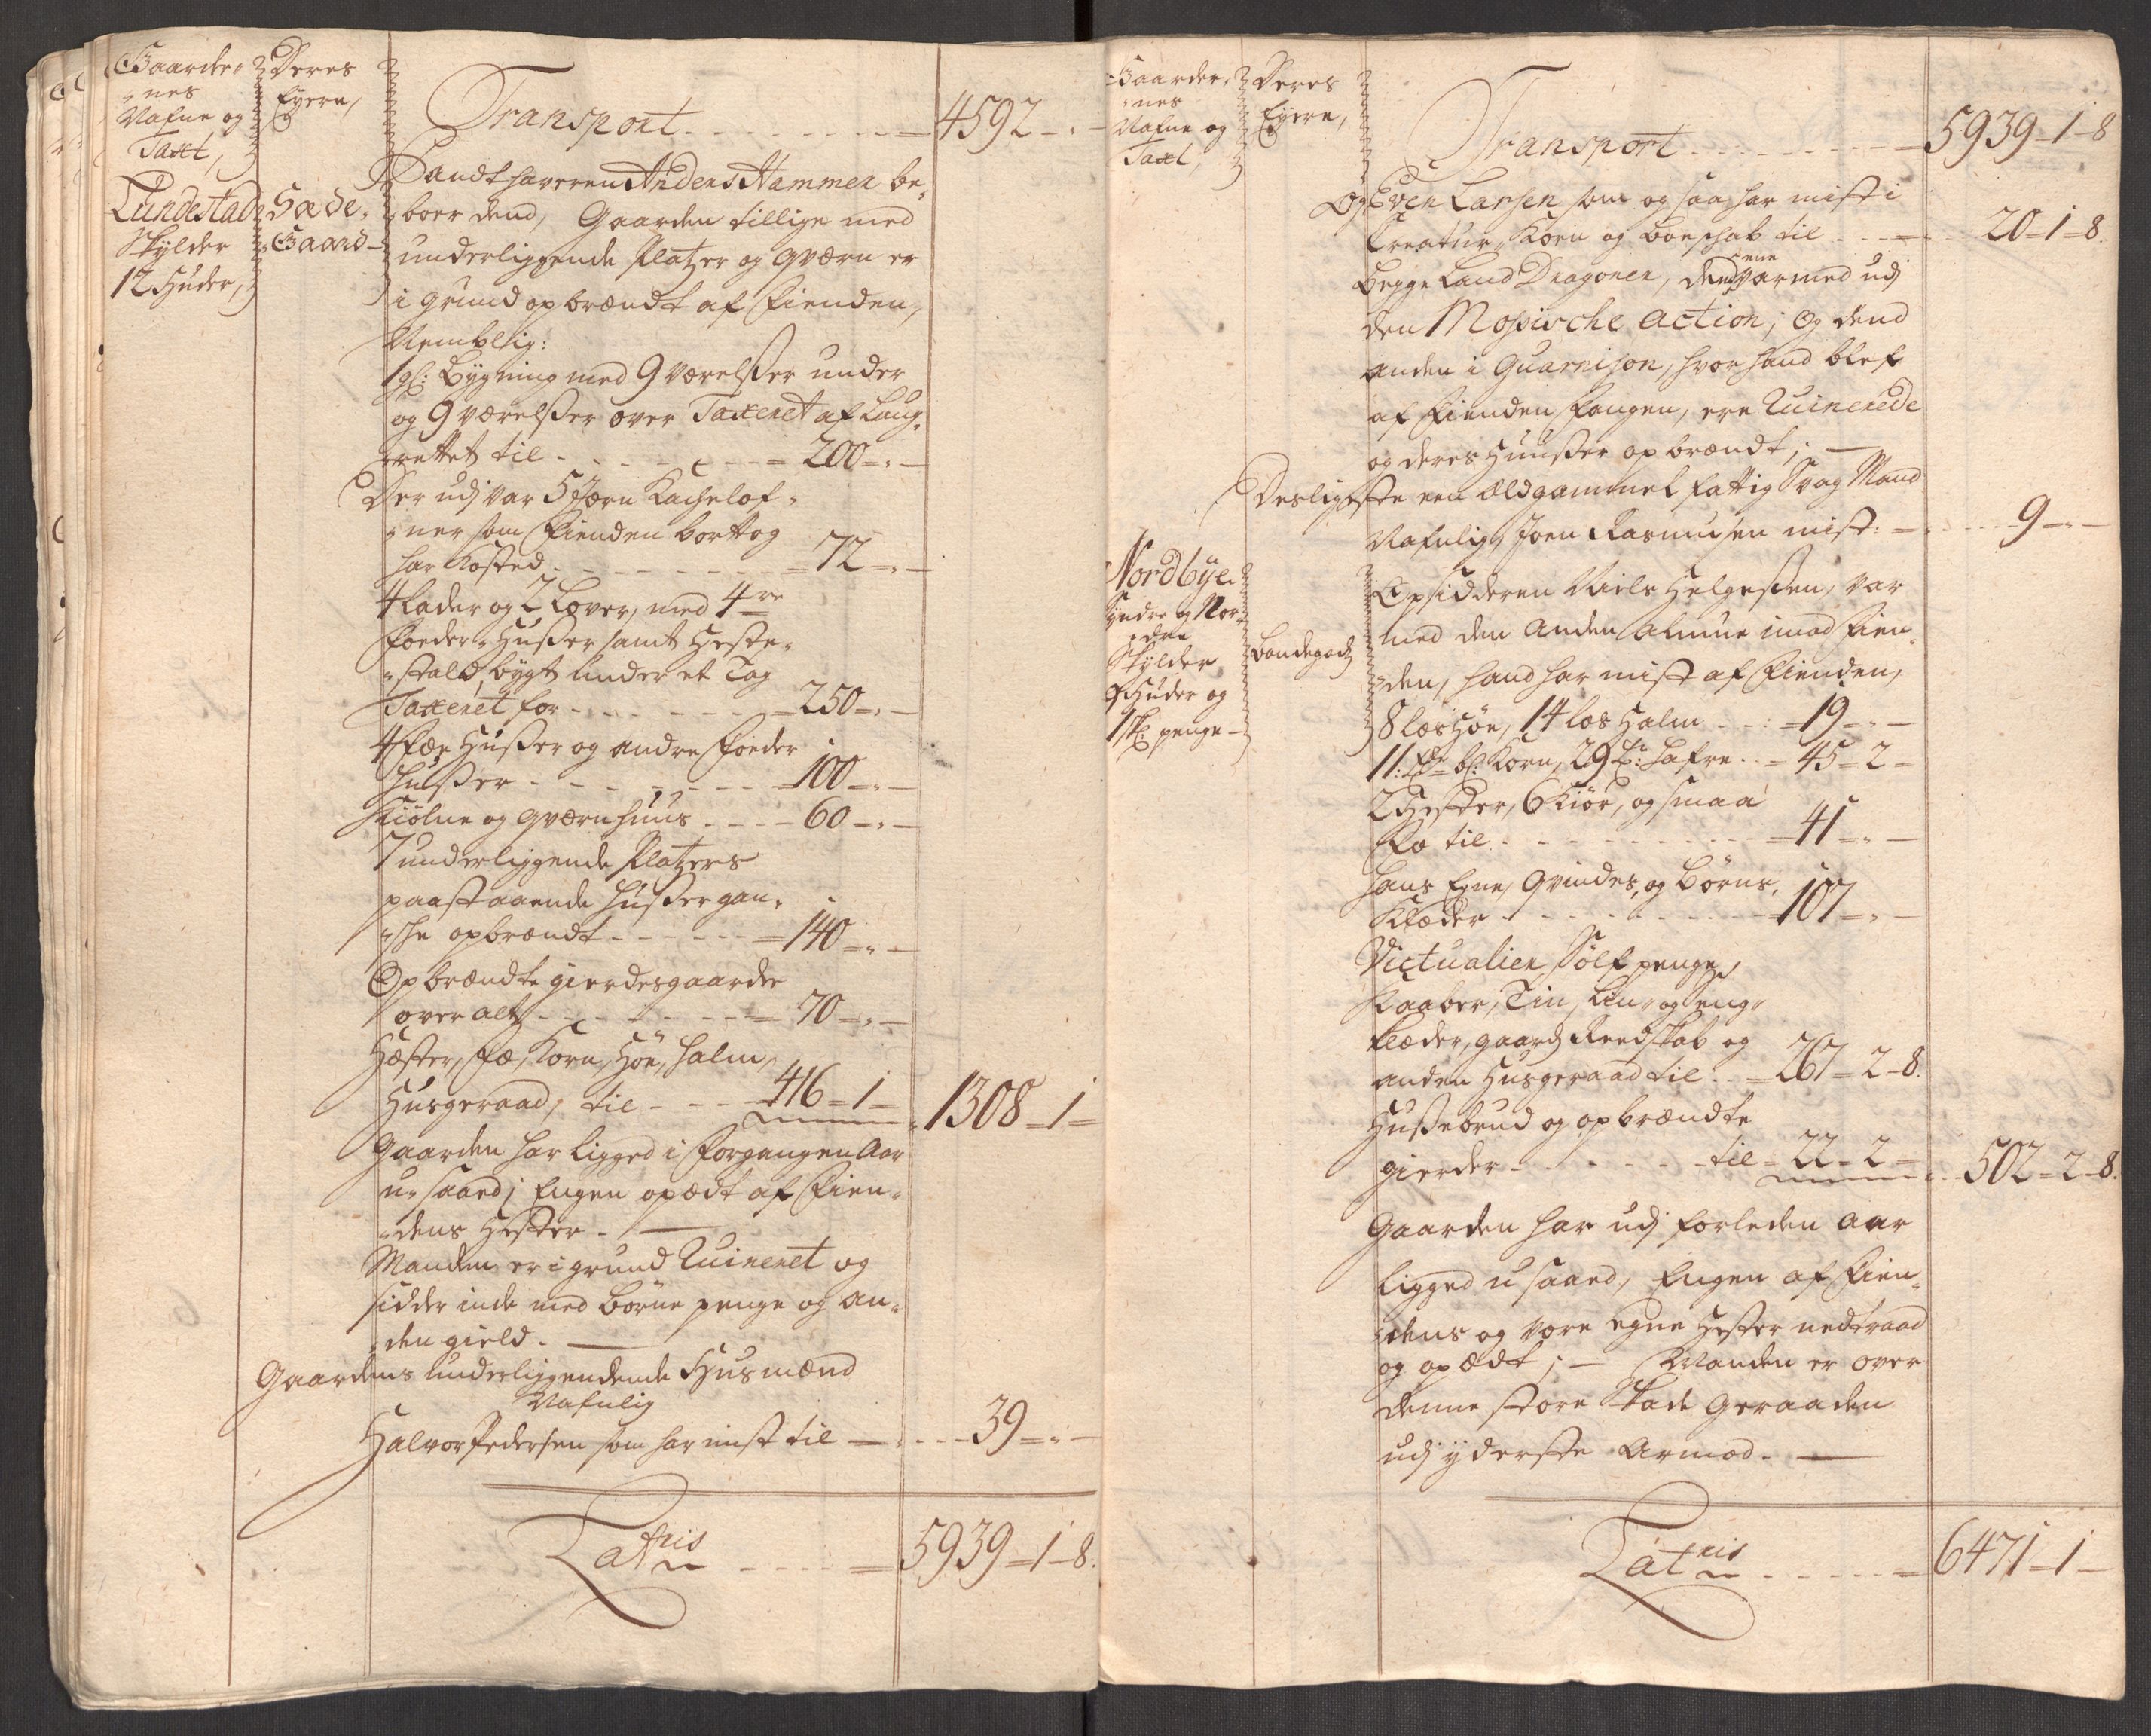 Gaarder-
nes
Nafne og
Taxt,
Deres
Eyere,
Transport - - - - - 4592 - " -
Lundestad
Skylder
12 Huder,
Sæde-
Gaard
Landthaveren Anders Hammer be-
boer dend, Gaarden tillige med
underliggende Platzer og Qværn er
i grund opbrændt af Fienden,
Nemblig:
1 gl: Bygning med 9 værelsser under
og 9 værelsser over Taxeret af Laug-
rettet til - - - - 200 - " -
Der udj var 5 Jærn Kachelof-
ner som Fienden borttog
har kosted - - - - 72 - " -
4 Lader og 2 Lover, med 4re
Foeder Husser samt Heste-
stald, bygt under et Tag
Taxeret for - - - - 250 - " -
4 Fæe Husser og andre Foeder
Husser - - - - 100 - " -
Kiølne og Qværnhuus - - - 60 - " -
7 underliggende Platzers
paastaaende Husser gan-
ske opbrændt - - - - 140 - " -
Opbrændte gierdesgaarde
over alt - - - - 70 - " -
Hæster, Fæ, Korn, Høe, Halm,
Husgeraad, til - - - 416 - 1 - 1308 - 1 -
Gaarden har ligged i Forgangen Aar
u-saaed; Engen opædt af Fien-
dens Hester. -
Manden er i grund Ruineret og
sidder inde med Børne penge og an-
den gield. -
Gaardens underliggendende Husmænd
Nafnlig
Halvor Pedersen som har mist til - - - 39 - " -
Latris - - - - 5939 - 1 - 8.
Gaarder-
nes
Nafne og
Taxt,
Deres
Eyere,
Transport - - - - - 5939 - 1 - 8
Og Even Larsen som og saa har mist i
Creatur, Korn og Boeschab til - - - 20 - 1 - 8.
begge Land Dragoner, dend eene var med udj
den Mossische action; Og dend
anden i Guarnison, hvor hand blef
af Fienden fangen, ere Ruinerede
og deres Huusser opbrændt; -
Desligeste een Eldgammel fattig Svag Mand
Nafnlig, Joen Rasmusen mist: - - - 9 - " -
Nordbye
Syndre og Nor-
dre
Skylder
9 Huder og
1 sk: penge -
Bondegods
Opsidderen Niels Helgessen, var
med den Anden Almue imod Fien-
den, hand har mist af Fienden,
8 læs Høe, 14 los Halm - - 19 - " -
11: bl: Korn, 29 Hafre - 45 - 2 -
2 Hester, 6 Kiør, og smaa
Fæ til - - - - 41 - " -
Hans Egne, Qvindes, og Børns,
Klæder - - - - 107 - " -
Victualier, Sølf penge,
Kaaber, Tin, Lin- og seng-
klæder, gaards Reedskab og
anden Husgeraad til - 267 - 2 - 8.
Hussebrud og opbrændte
gierder - - - til - 22 - 2 - 502 - 2 - 8.
Gaarden har udj forleden Aar
ligged u saaed, Engen af Fien-
dens og vore egne Hester nedtraad
og opædt; - Manden er over
denne store Skade Geraaden
udj yderste Armod. -
Latris - - - - 6471 - 1 -